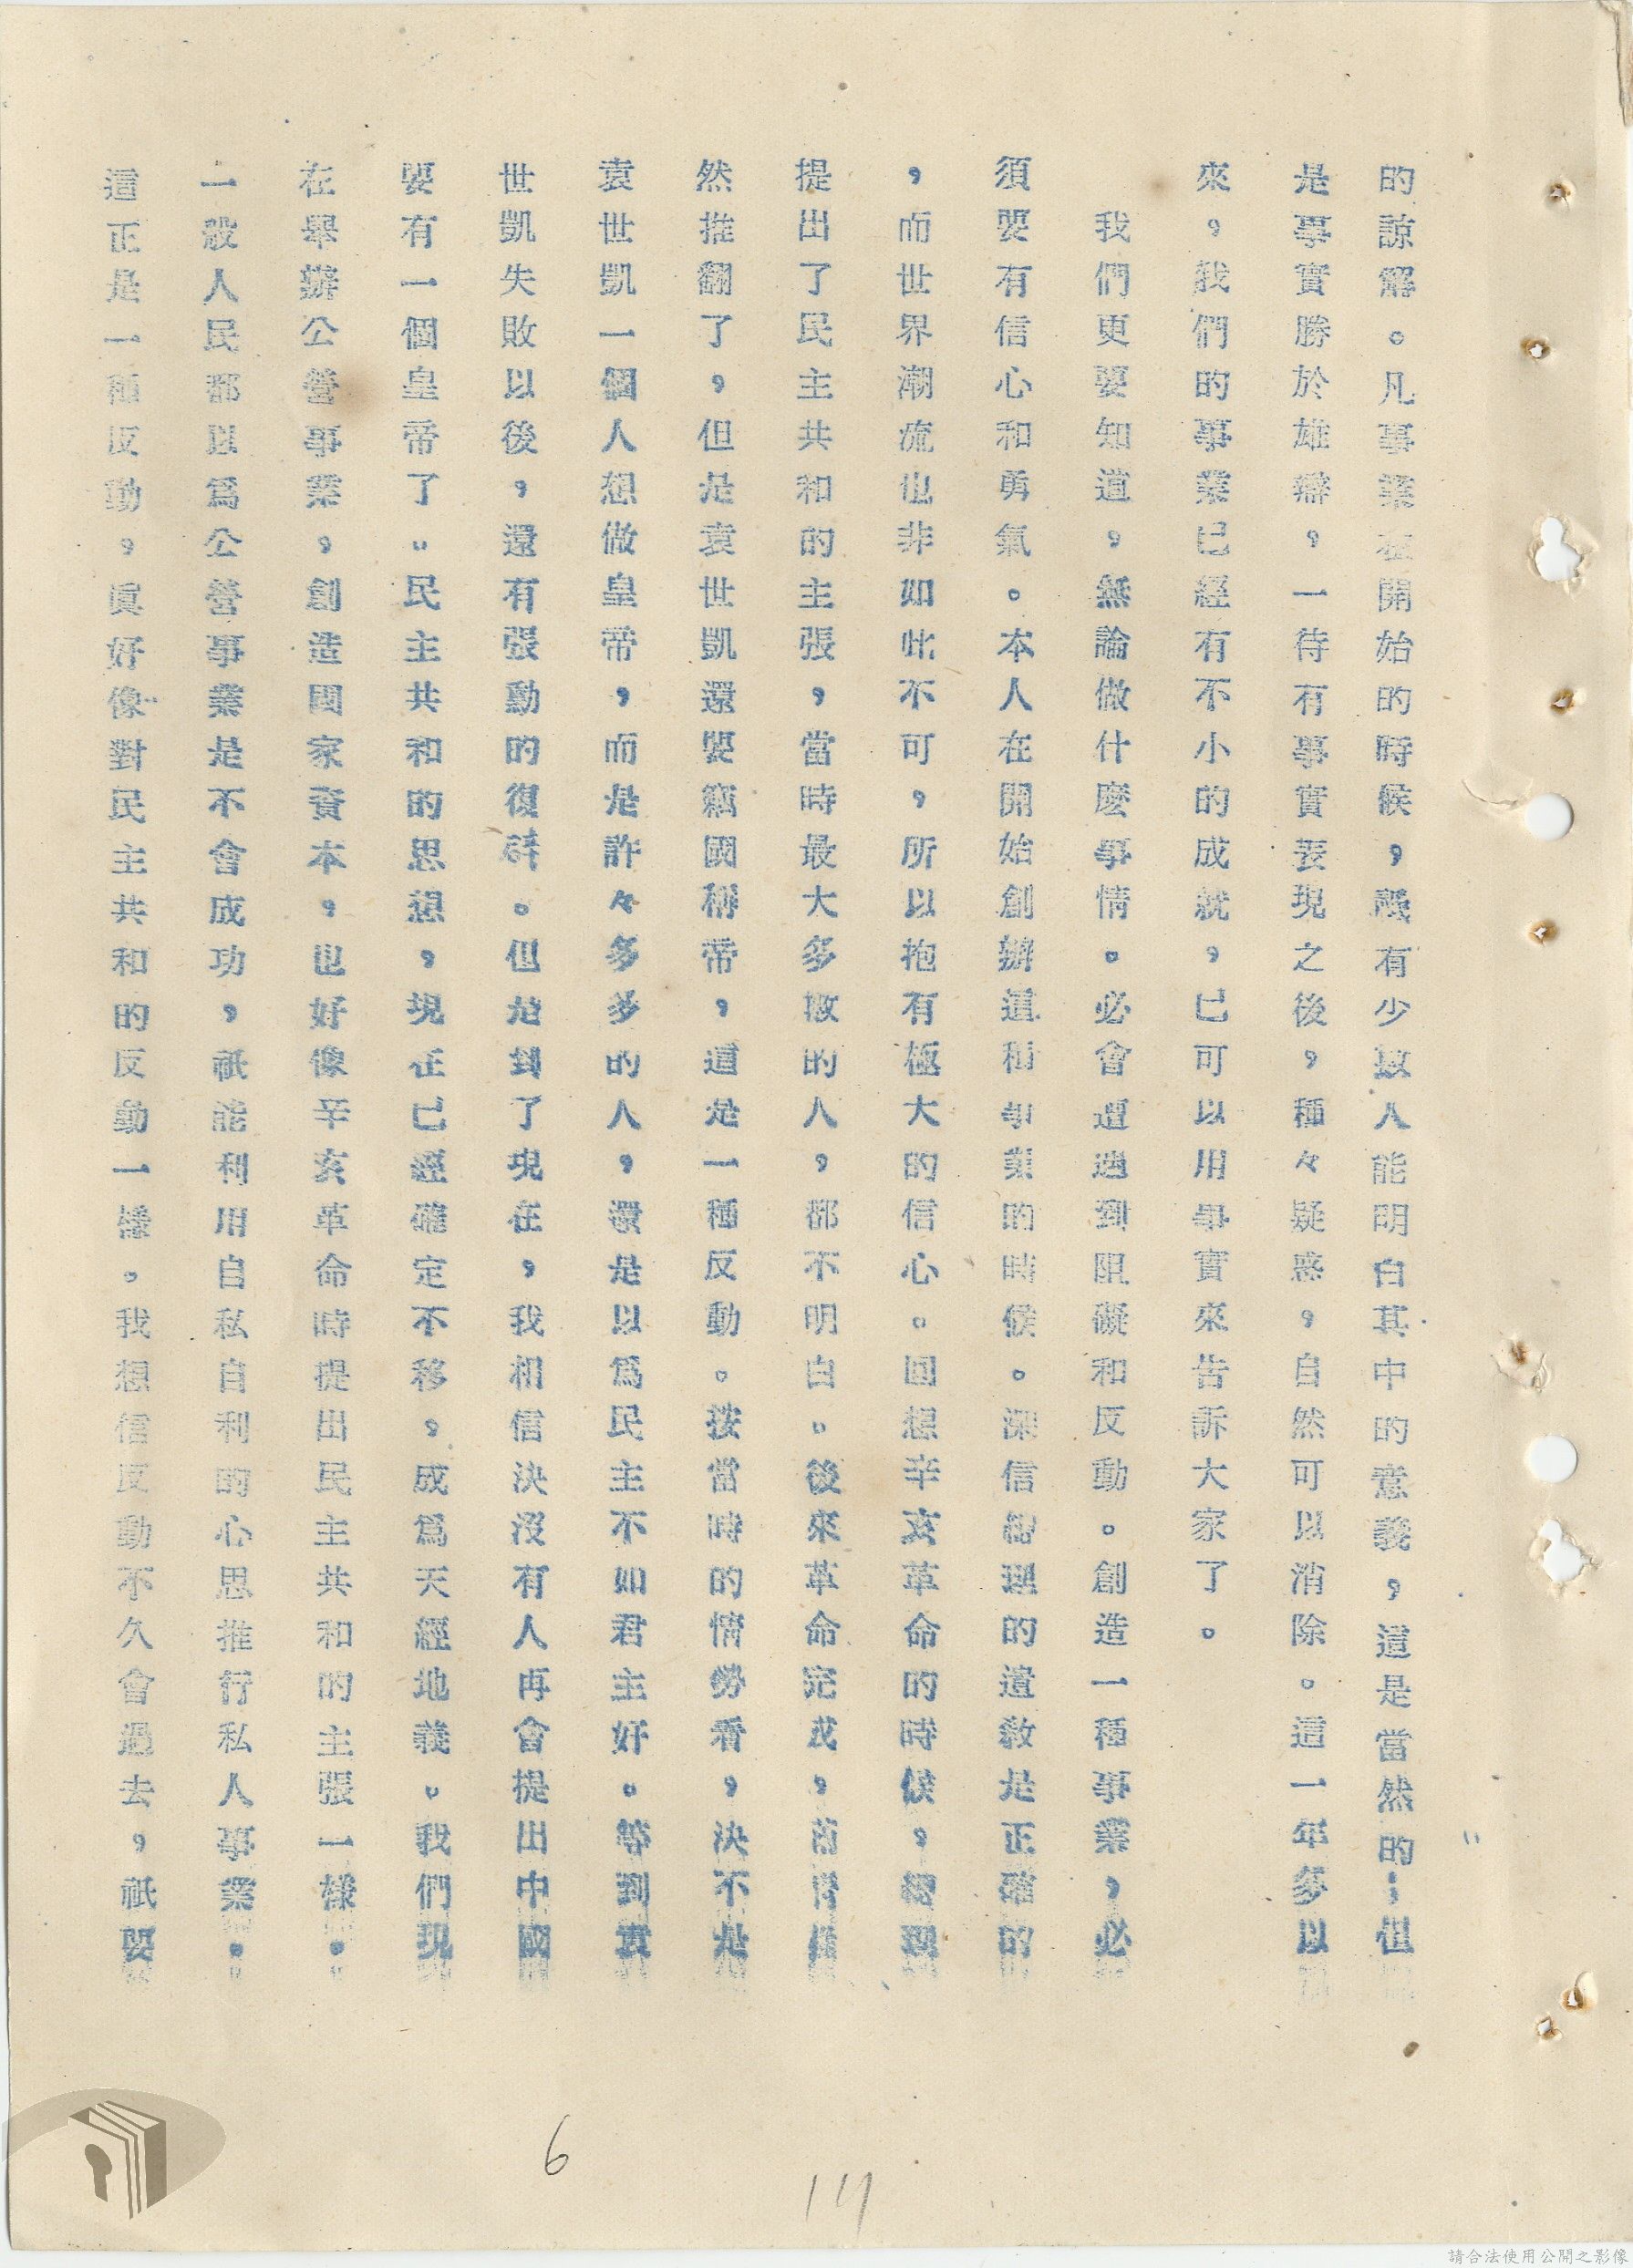 的諒解。凡事業在開始的時候，祗有少數人能明白其中的意義，這是當然的；但
是事實勝於雄辯，一待有事實表現之後，種々疑惑，自然可以消除。這一年多以
來，我們的事業已經有不小的成就，已可以用事實來告訴大家了。
我們更要知道，無論做什麼事情。必會遭遇到阻礙和反動。創造一種事業，必
須要有信心和勇氣。本人在開始創辦這種事業的時候。深信總理的遺教是正確的
，而世界潮流也非如此不可，所以抱有極大的信心。回想辛亥革命的時候，總理
提出了民主共和的主張，當時最大多數的人，都不明白。後來革命完成，滿清雖
然推翻了，但是袁世凱還要竊國稱帝，這是一種反動。按當時的情勢看，決不是
袁世凱一個人想做皇帝，而是許々多多的人，還是以為民主不如君主好。等到袁
世凱失敗以後，還有張勳的復辟。但是到了現在，我相信決沒有人再會提出中國
要有一個皇帝了。民主共和的思想，現在已經確定不移，成為天經地義。我們現
在舉辦公營事業，創造國家資本，也好像辛亥革命時提出民主共和的主張一樣。
一般人民都以為公營事業是不會成功，祗能利用自私自利的心思推行私人事業。
這正是一種反動，眞好像對民主共和的反動一樣。我想信反動不久會過去，祗要
6
14
請合法使用公開之影像